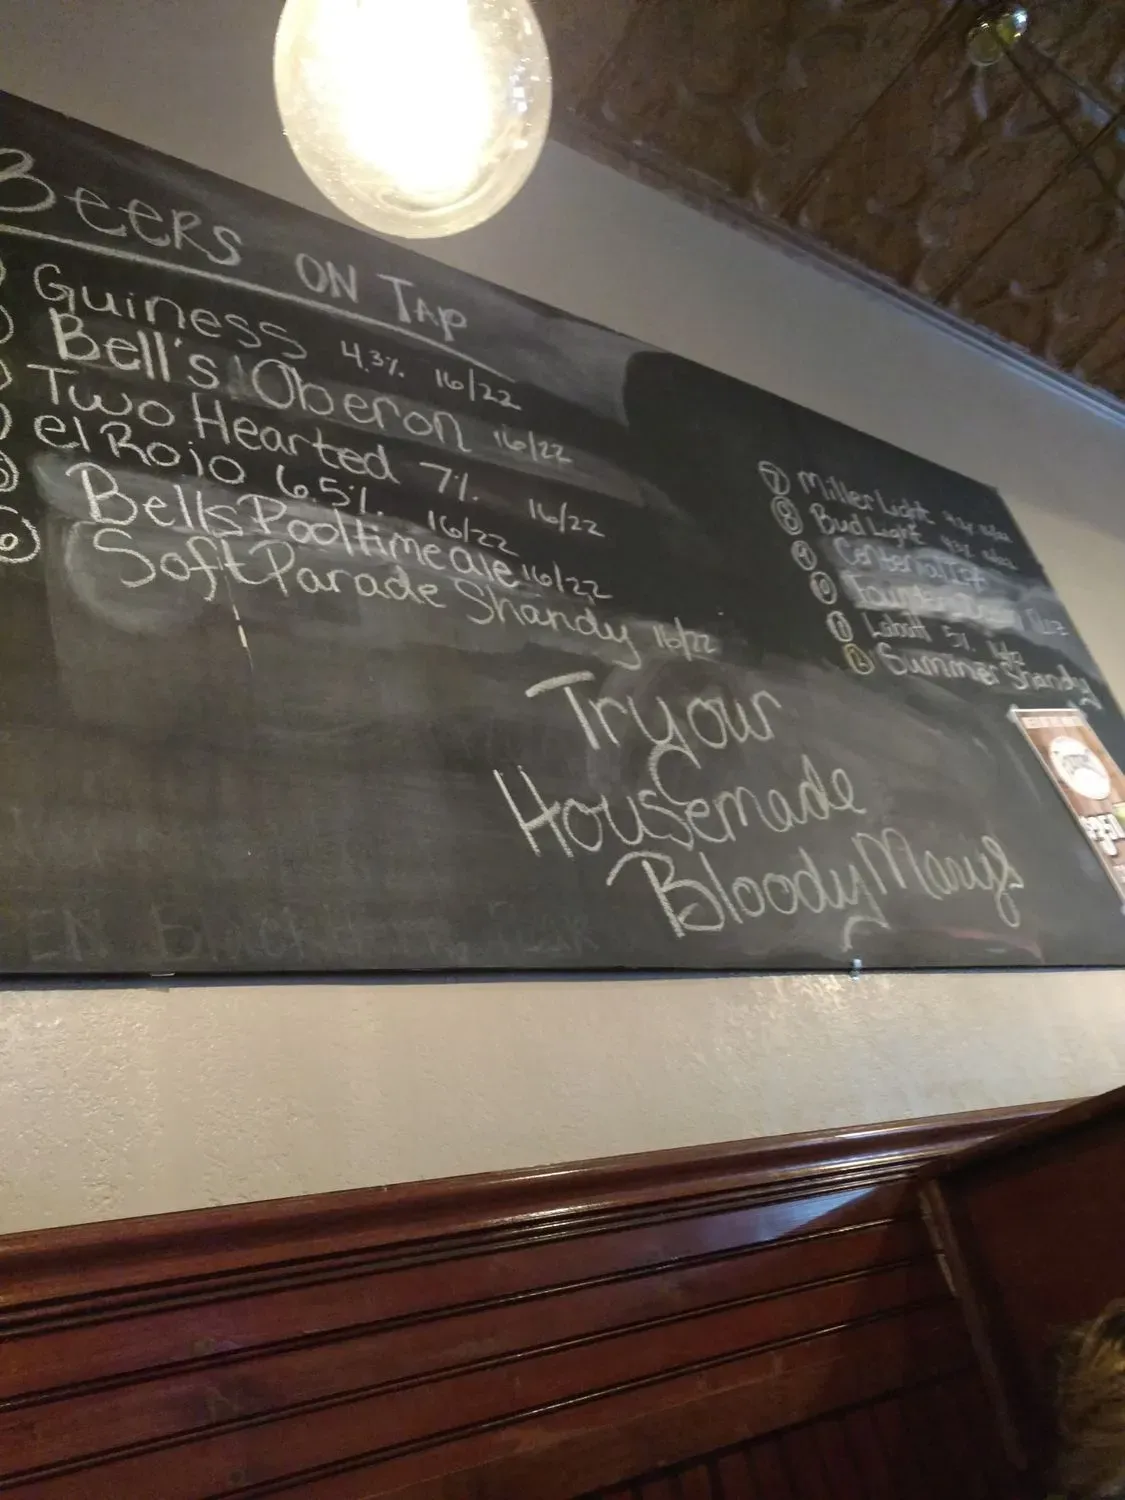 Beers on Tap
Guiness 4.3% 16/22
Bell's Oberon 16/22
Two Hearted 7% 16/22
el Rojo 6.5% 16/22
Bells Pooltime ale 16/22
6 Soft Parade Shandy 16/22
7 Miller Light
8 Bud Light
9
10
11 Labatt 5%
12 Summer Shandy
Try our
Housemade
Bloody Marys